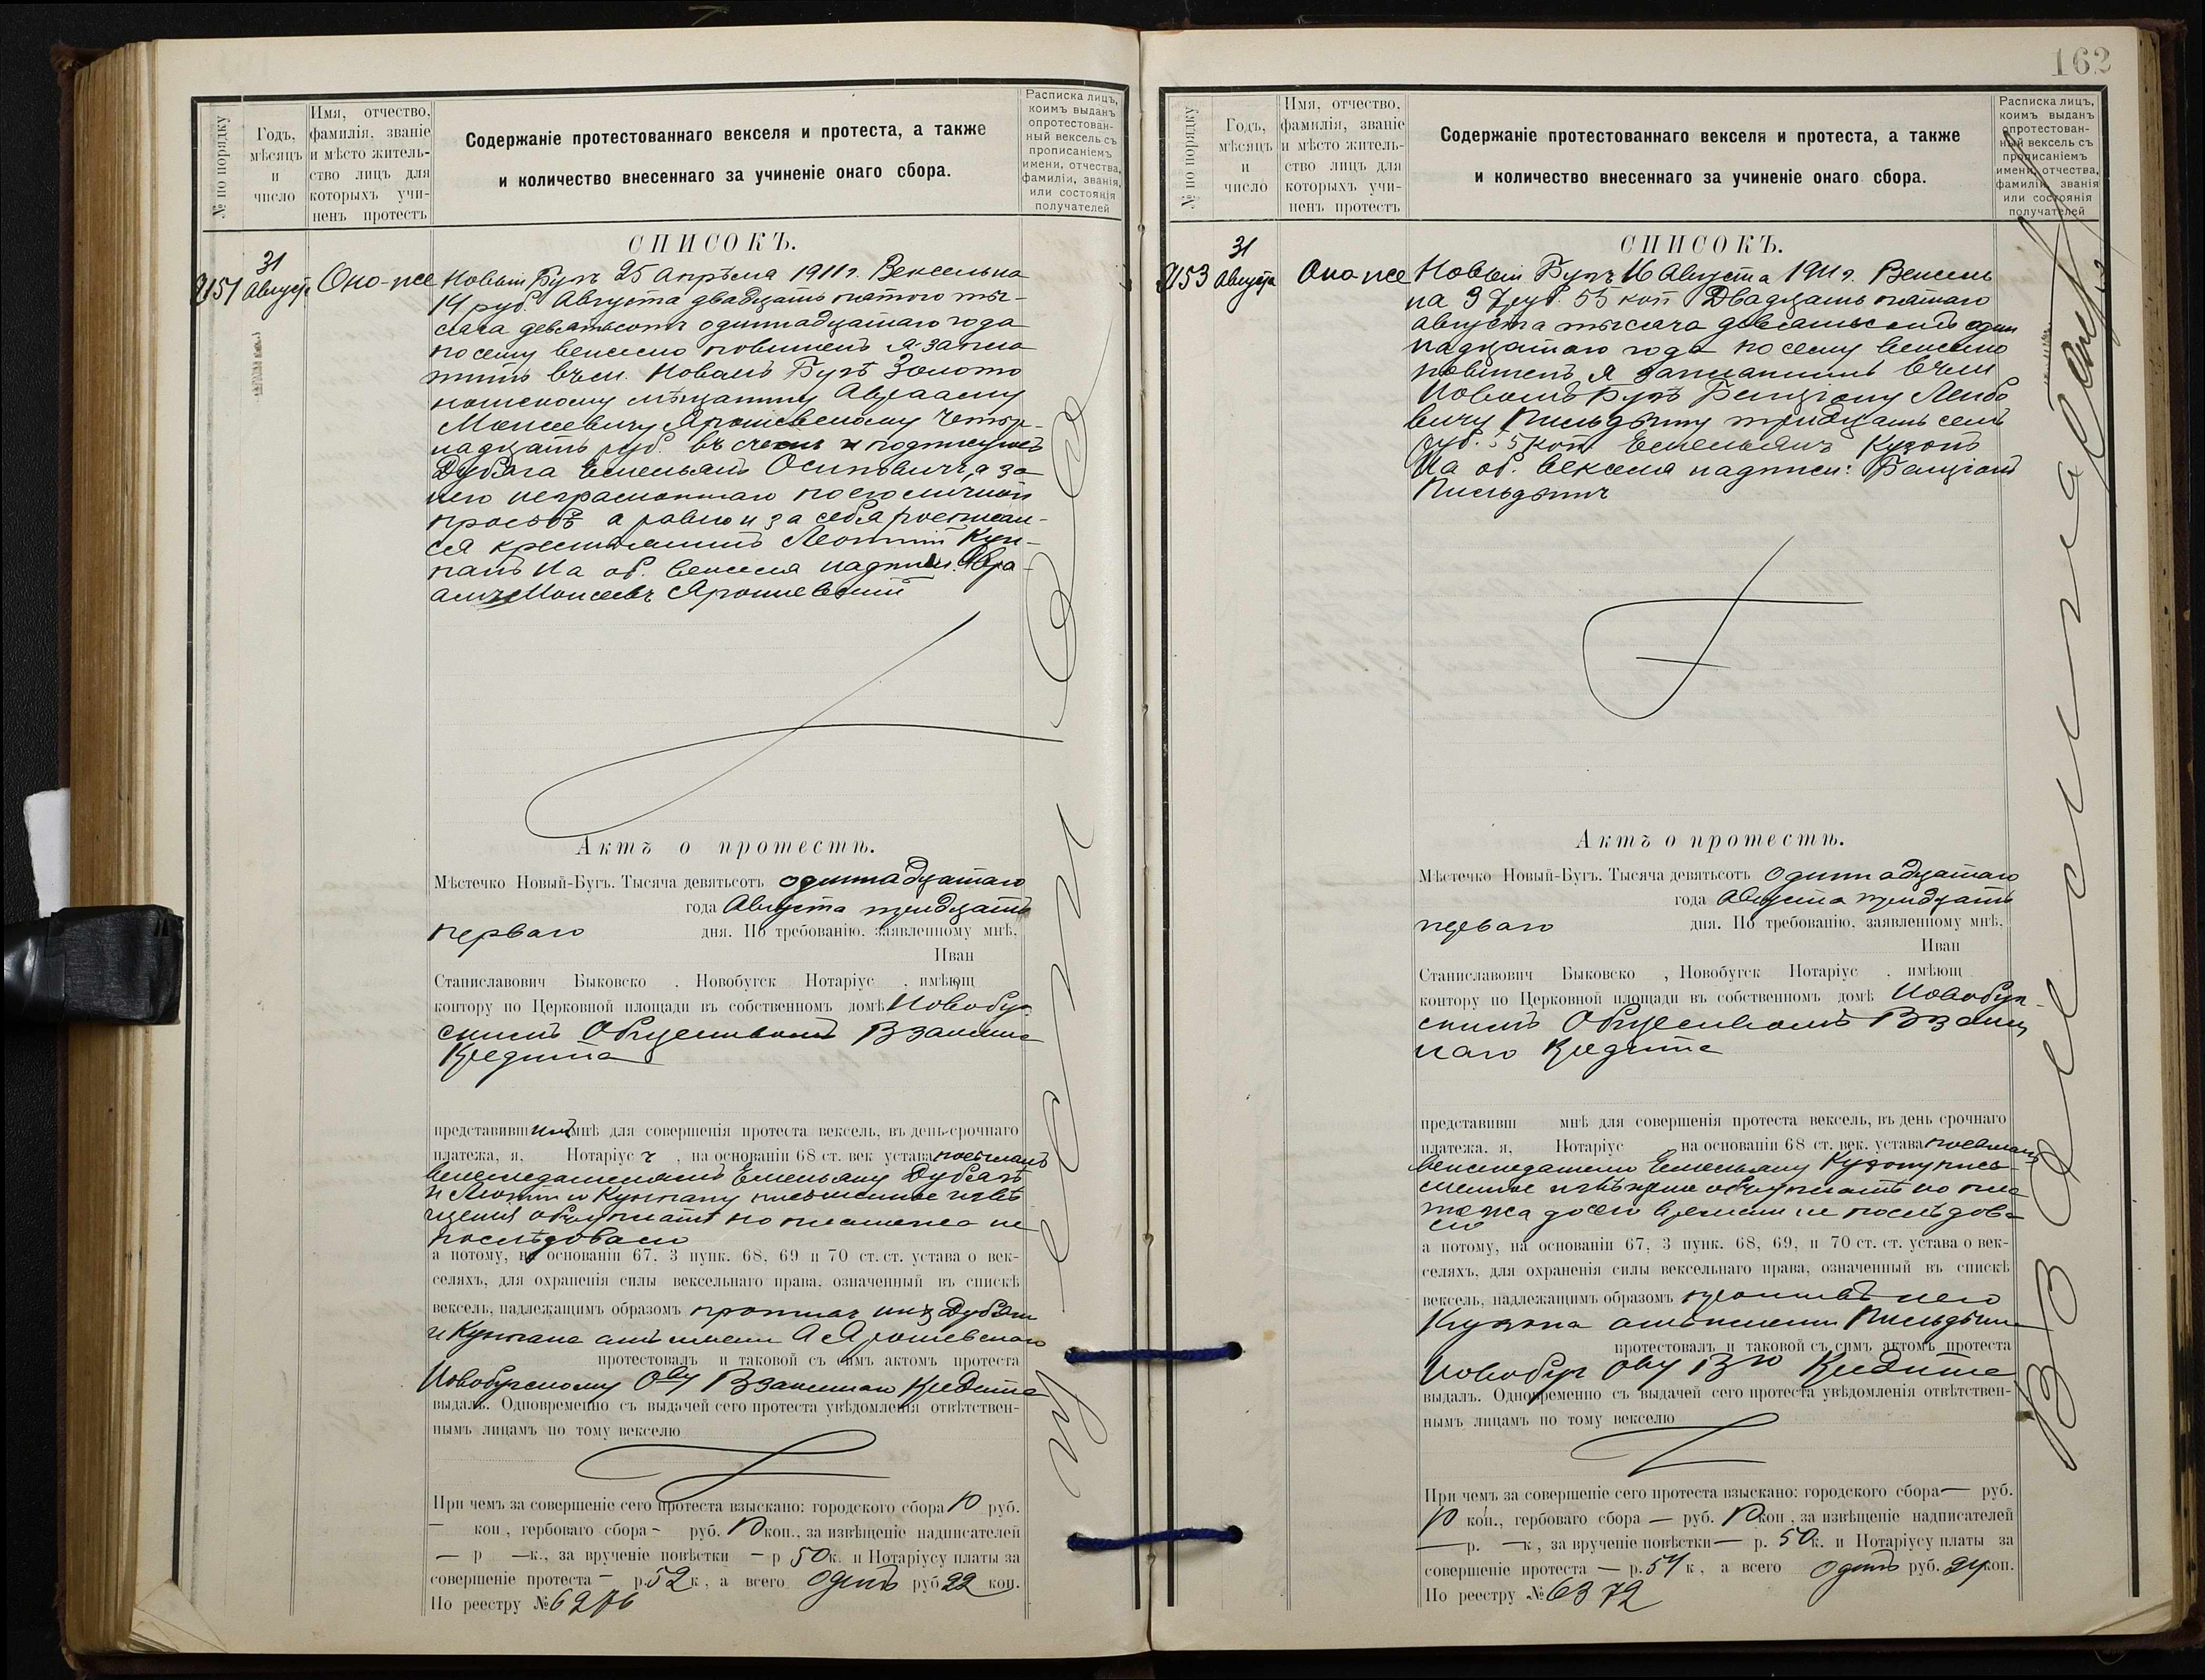 № по порядку
Годъ, мѣсяцъ и число
Имя, отчество, фамилія, званіе и мѣсто жительство лицъ для которыхъ учиненъ протестъ
Содержаніе протестованнаго векселя и протеста, а также
и количество внесеннаго за учиненіе онаго сбора.
Расписка лицъ, коимъ выданъ опротестованный вексель съ прописаніемъ имени, отчества, фамиліи, званія, или состоянія получателей
СПИСОКЪ.
31
Августа
Оно-же
Новый Бугъ 25 Апрѣля 1911 г. Вексель на
14 руб. Августа двадцать пятого ты-
сяча девятьсотъ одиннадцатаго года
по сему векселю повиненъ я запла
тить въ м. Новомъ Бугѣ Золото
ношскому мѣщанину Авраааму
Моисеевичу Ярошевскому четыр-
надцать руб.
Дубяга Емельянъ Осиповичъ, а за
него неграмотнаго по его личной
просьбѣ а равно и за себя росписал-
ся крестьянинъ Леонтій Кун-
панъ На об. векселя надписи: Авра-
амъ Моисеевъ Ярошевскій
Актъ о протестѣ.
Мѣстечко Новый-Бугъ. Тысяча девятьсотъ одиннадцатаго
года Августа тридцать
перваго дня. По требованію, заявленному мнѣ,
Иван
Станиславович Быковско , Новобугск Нотаріус , имѣющ
контору по Церковной площади въ собственномъ домѣ Новобуг
скимъ Обществомъ Взаимна
Кредита
представившимъ мнѣ для совершенія протеста вексель, въ день срочнаго
платежа, я, Нотаріусъ , на основаніи 68 ст. век устава послалъ
векселедателямъ Емельяну Дубягѣ
и Леонтію Кунпану письменное извѣ
щенія
послѣдовало
а потому, на основаніи 67, 3 пунк. 68, 69 и 70 ст. ст. устава о век-
селяхъ, для охраненія силы вексельнаго права, означенный въ спискѣ
вексель, надлежащимъ образомъ противъ нихъ Дубяги
и Кунпана
протестовалъ и таковой съ симъ актомъ протеста
Новобугскому Обву Взаимнаго Кредита
выдалъ. Одновременно съ выдачей сего протеста увѣдомленія отвѣтствен-
нымъ лицамъ по тому векселю
При чемъ за совершеніе сего протеста взыскано: городского сбора 10 руб.
— коп., гербоваго сбора — руб. 10 коп., за извѣщеніе надписателей
— р —к., за врученіе повѣстки — р 50к. и Нотаріусу платы за
совершеніе протеста — р.52к, а всего одинъ руб 22 коп.
По реестру №6276
162
№ по порядку
Годъ, мѣсяцъ и число
Имя, отчество, фамилія, званіе и мѣсто жительство лицъ для которыхъ учиненъ протестъ
Содержаніе протестованнаго векселя и протеста, а также
и количество внесеннаго за учиненіе онаго сбора.
Расписка лицъ, коимъ выданъ опротестованный вексель съ прописаніемъ имени, отчества, фамиліи, званія или состоянія получателей
СПИСОКЪ.
31
Августа
Оно же
Новый Бугъ 16 Августа 1911 г. Вексель
на 37 руб. 55 коп Двадцать пятаго
августа тысяча девятьсотъ один
надцатаго года по сему векселю
повиненъ я заплатить въ м
Новомъ Бугѣ Бенціону Лейбо
вичу Письдыну тридцать семь
руб. 55 коп Емельянъ
На об. векселя надписи: Бенціонъ
Актъ о протестѣ.
Мѣстечко Новый-Бугъ. Тысяча девятьсотъ одиннадцатаго
года Августа тридцать
перваго дня. По требованію, заявленному мнѣ,
Иван
Станиславович Быковско , Новобугск Нотаріус , имѣющ
контору по Церковной площади въ собственномъ домѣ Новобуг-
скимъ Обществомъ Взаим
наго Кредита
представивш мнѣ для совершенія протеста вексель, въ день срочнаго
платежа, я, Нотаріус на основаніи 68 ст. век. устава послалъ
векселедателю Емельяну пись-
менное
до сего времени не послѣдова
ло
а потому, на основаніи 67, 3 пунк. 68, 69, и 70 ст. ст. устава о век-
селяхъ, для охраненія силы вексельнаго права, означенный въ спискѣ
вексель, надлежащимъ образомъ противъ него
протестовалъ и таковой съ симъ актомъ протеста
Новобуг Обву Вго Кредита
выдалъ. Одновременно съ выдачей сего протеста увѣдомленія отвѣтствен-
нымъ лицамъ по тому векселю
При чемъ за совершеніе сего протеста взыскано: городского сбора — руб.
10 коп., гербоваго сбора — руб. 10 коп, за извѣщеніе надписателей
— р. — к, за врученіе повѣстки — р. 50к. и Нотаріусу платы за
совершеніе протеста — р.54 к, а всего одинъ руб. 24 коп.
По реестру №6372